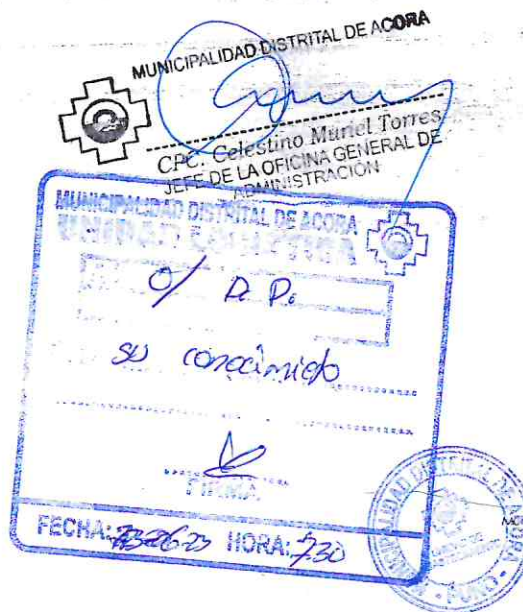 MUNICIPALIDAD DISTRITAL DE ACORA
CPC. Celestino Muriel Torres
JEFE DE LA OFICINA GENERAL DE
ADMINISTRACIÓN
MUNICIPALIDAD DISTRITAL DE ACORA
su conocimieto
FIRMA
FECHA: HORA: 7:30
MUNICIPALIDAD DISTRITAL DE ACORA
- PUNO -